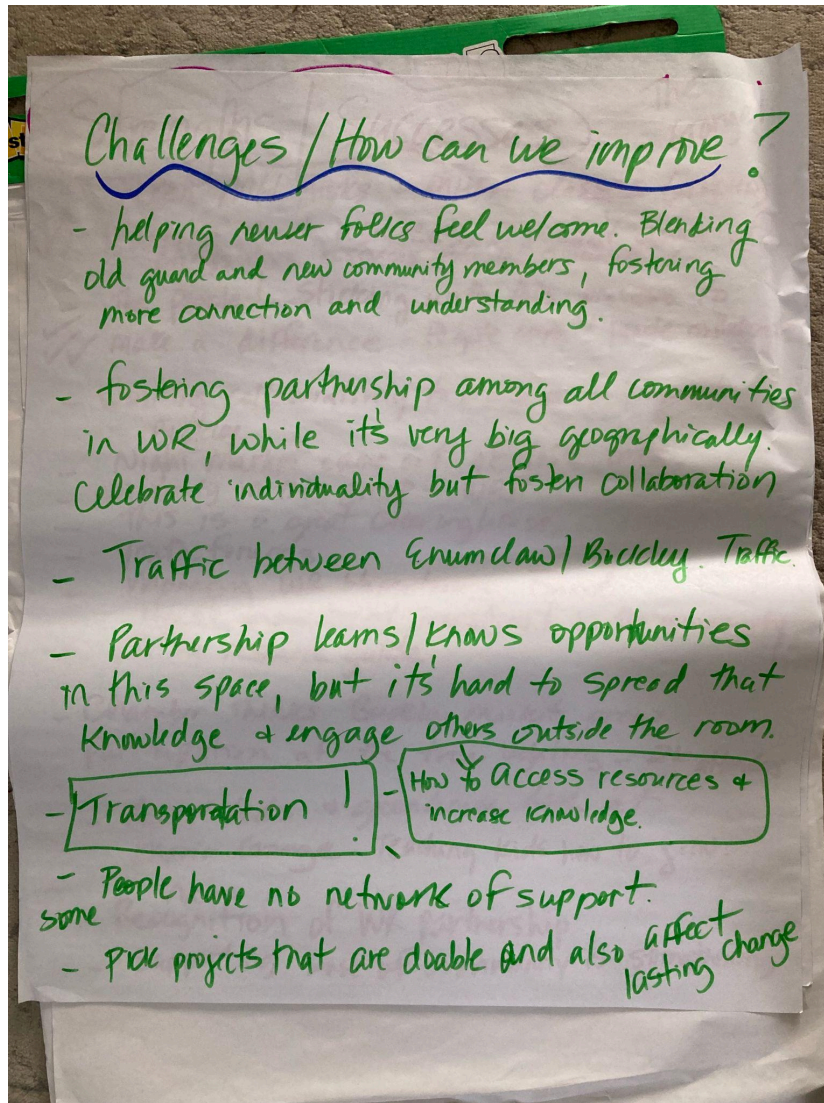 Challenges / How can we improve?
- helping newer folks feel welcome. Blending
old guard and new community members, fostering
more connection and understanding.
- fostering partnership among all communities
in WR, while it's very big geographically.
Celebrate individuality but foster collaboration
- Traffic between Enumclaw/Buckley. Traffic.
- Partnership learns/knows opportunities
in this space, but it's hard to spread that
knowledge & engage others outside the room.
- Transportation!
- How to access resources &
increase knowledge.
- some People have no network of support.
- pick projects that are doable and also affect
lasting change